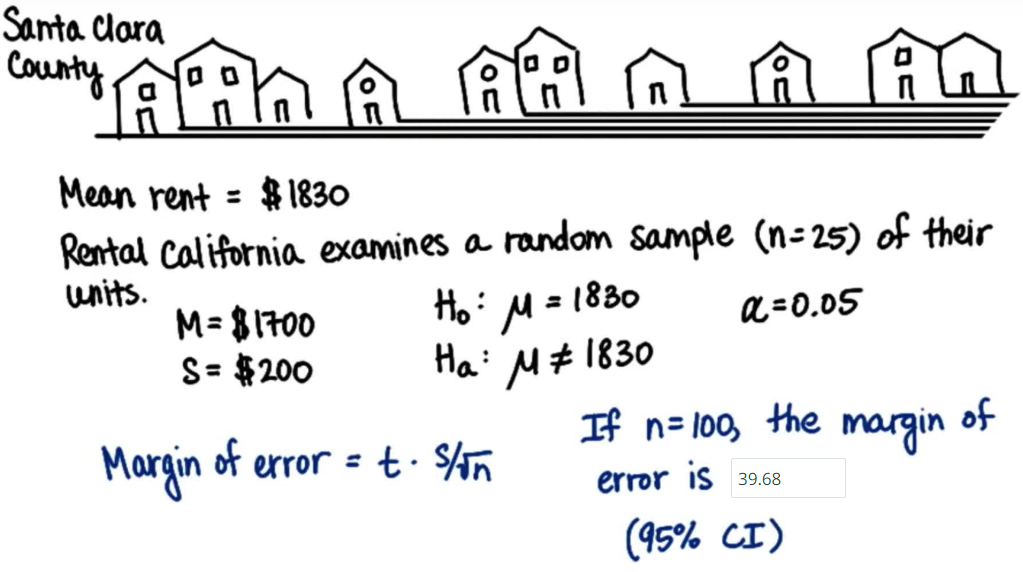 Santa Clara
County
Mean rent = $1830
Rental California examines a random sample (n=25) of their
units.
M= $1700
S= $200
H₀: μ = 1830
Hₐ: μ ≠ 1830
α=0.05
Margin of error = t · S/√n
If n=100, the margin of
error is 39.68
(95% CI)